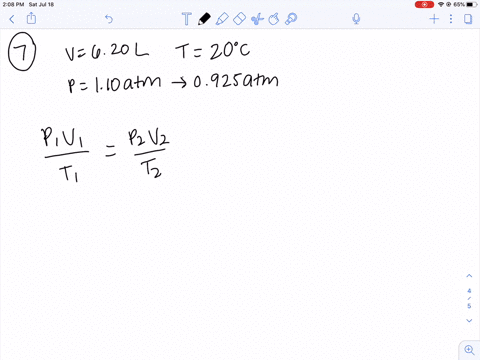 2:08 PM Sat Jul 18 65%
T
7 V=6.20L T=20°C
P=1.10atm → 0.925atm
P₁V₁ / T₁ = P₂V₂ / T₂
4
/
5